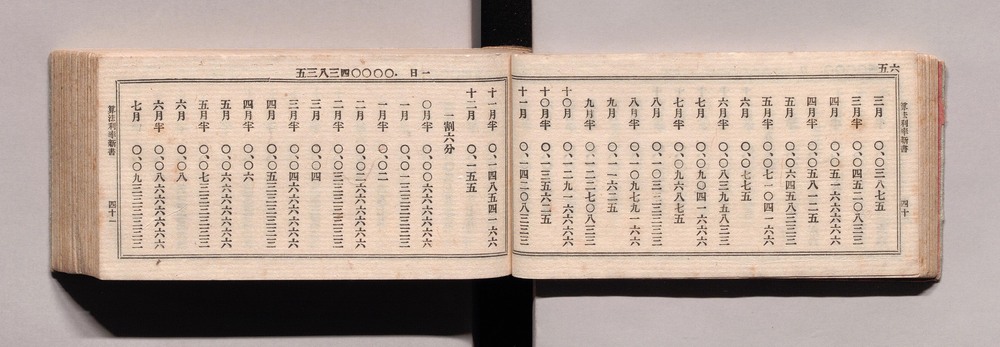 六五
算法利率新書 四十
三月 〇、〇三八七五
三月半 〇、〇四五二〇八三三
四月 〇、〇五一六六六六六
四月半 〇、〇五八一二五
五月 〇、〇六四五八三三三
五月半 〇、〇七一〇四一六六
六月 〇、〇七七五
六月半 〇、〇八三九五八三三
七月 〇、〇九〇四一六六六
七月半 〇、〇九六八七五
八月 〇、一〇三三三三三三
八月半 〇、一〇九七九一六六
九月 〇、一一六二五
九月半 〇、一二二七〇八三三
十〇月 〇、一二九一六六六六
十〇月半 〇、一三五六二五
十一月 〇、一四二〇八三三三
一日 .〇〇〇〇四三八三五
十一月半 〇、一四八五四一六六
十二月 〇、一五五
一割六分
〇月半 〇、〇〇六六六六六六
一月 〇、〇一三三三三三三
一月半 〇、〇二
二月 〇、〇二六六六六六六
二月半 〇、〇三三三三三三三
三月 〇、〇四
三月半 〇、〇四六六六六六六
四月 〇、〇五三三三三三三
四月半 〇、〇六
五月 〇、〇六六六六六六六
五月半 〇、〇七三三三三三三
六月 〇、〇八
六月半 〇、〇八六六六六六六
七月 〇、〇九三三三三三三
算法利率新書 四十一